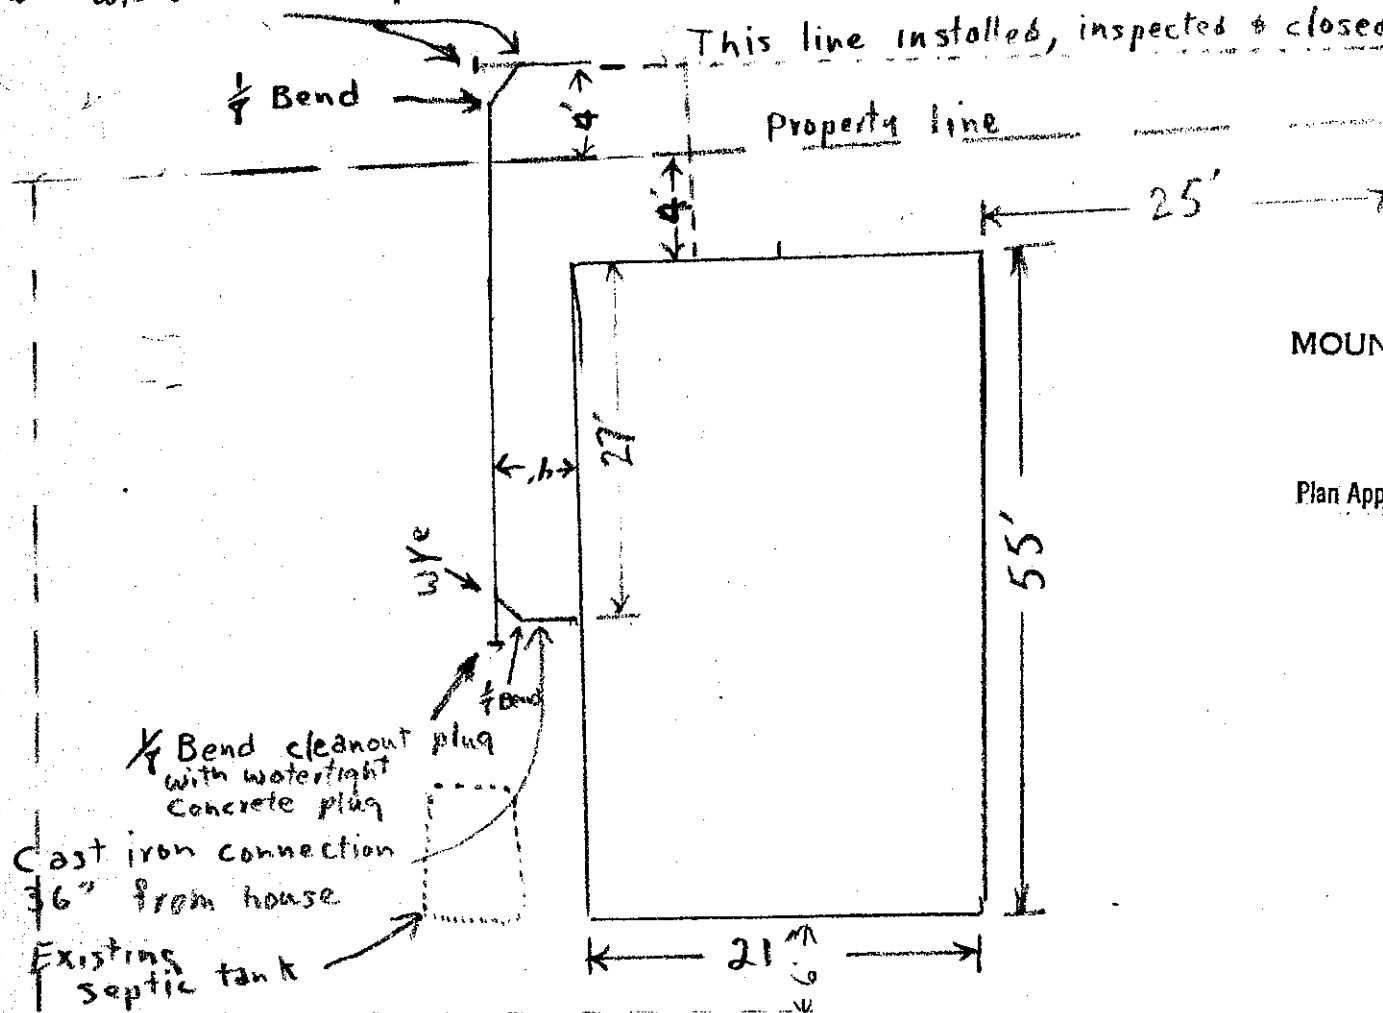 This line installed, inspected & closed
1/4 Bend
4'
Property line
4'
25'
MOUN
27'
Plan App
55'
wye
1/4 Bend
1/4 Bend cleanout plug
with watertight
concrete plug
Cast iron connection
36" from house
21'
Existing
septic tank